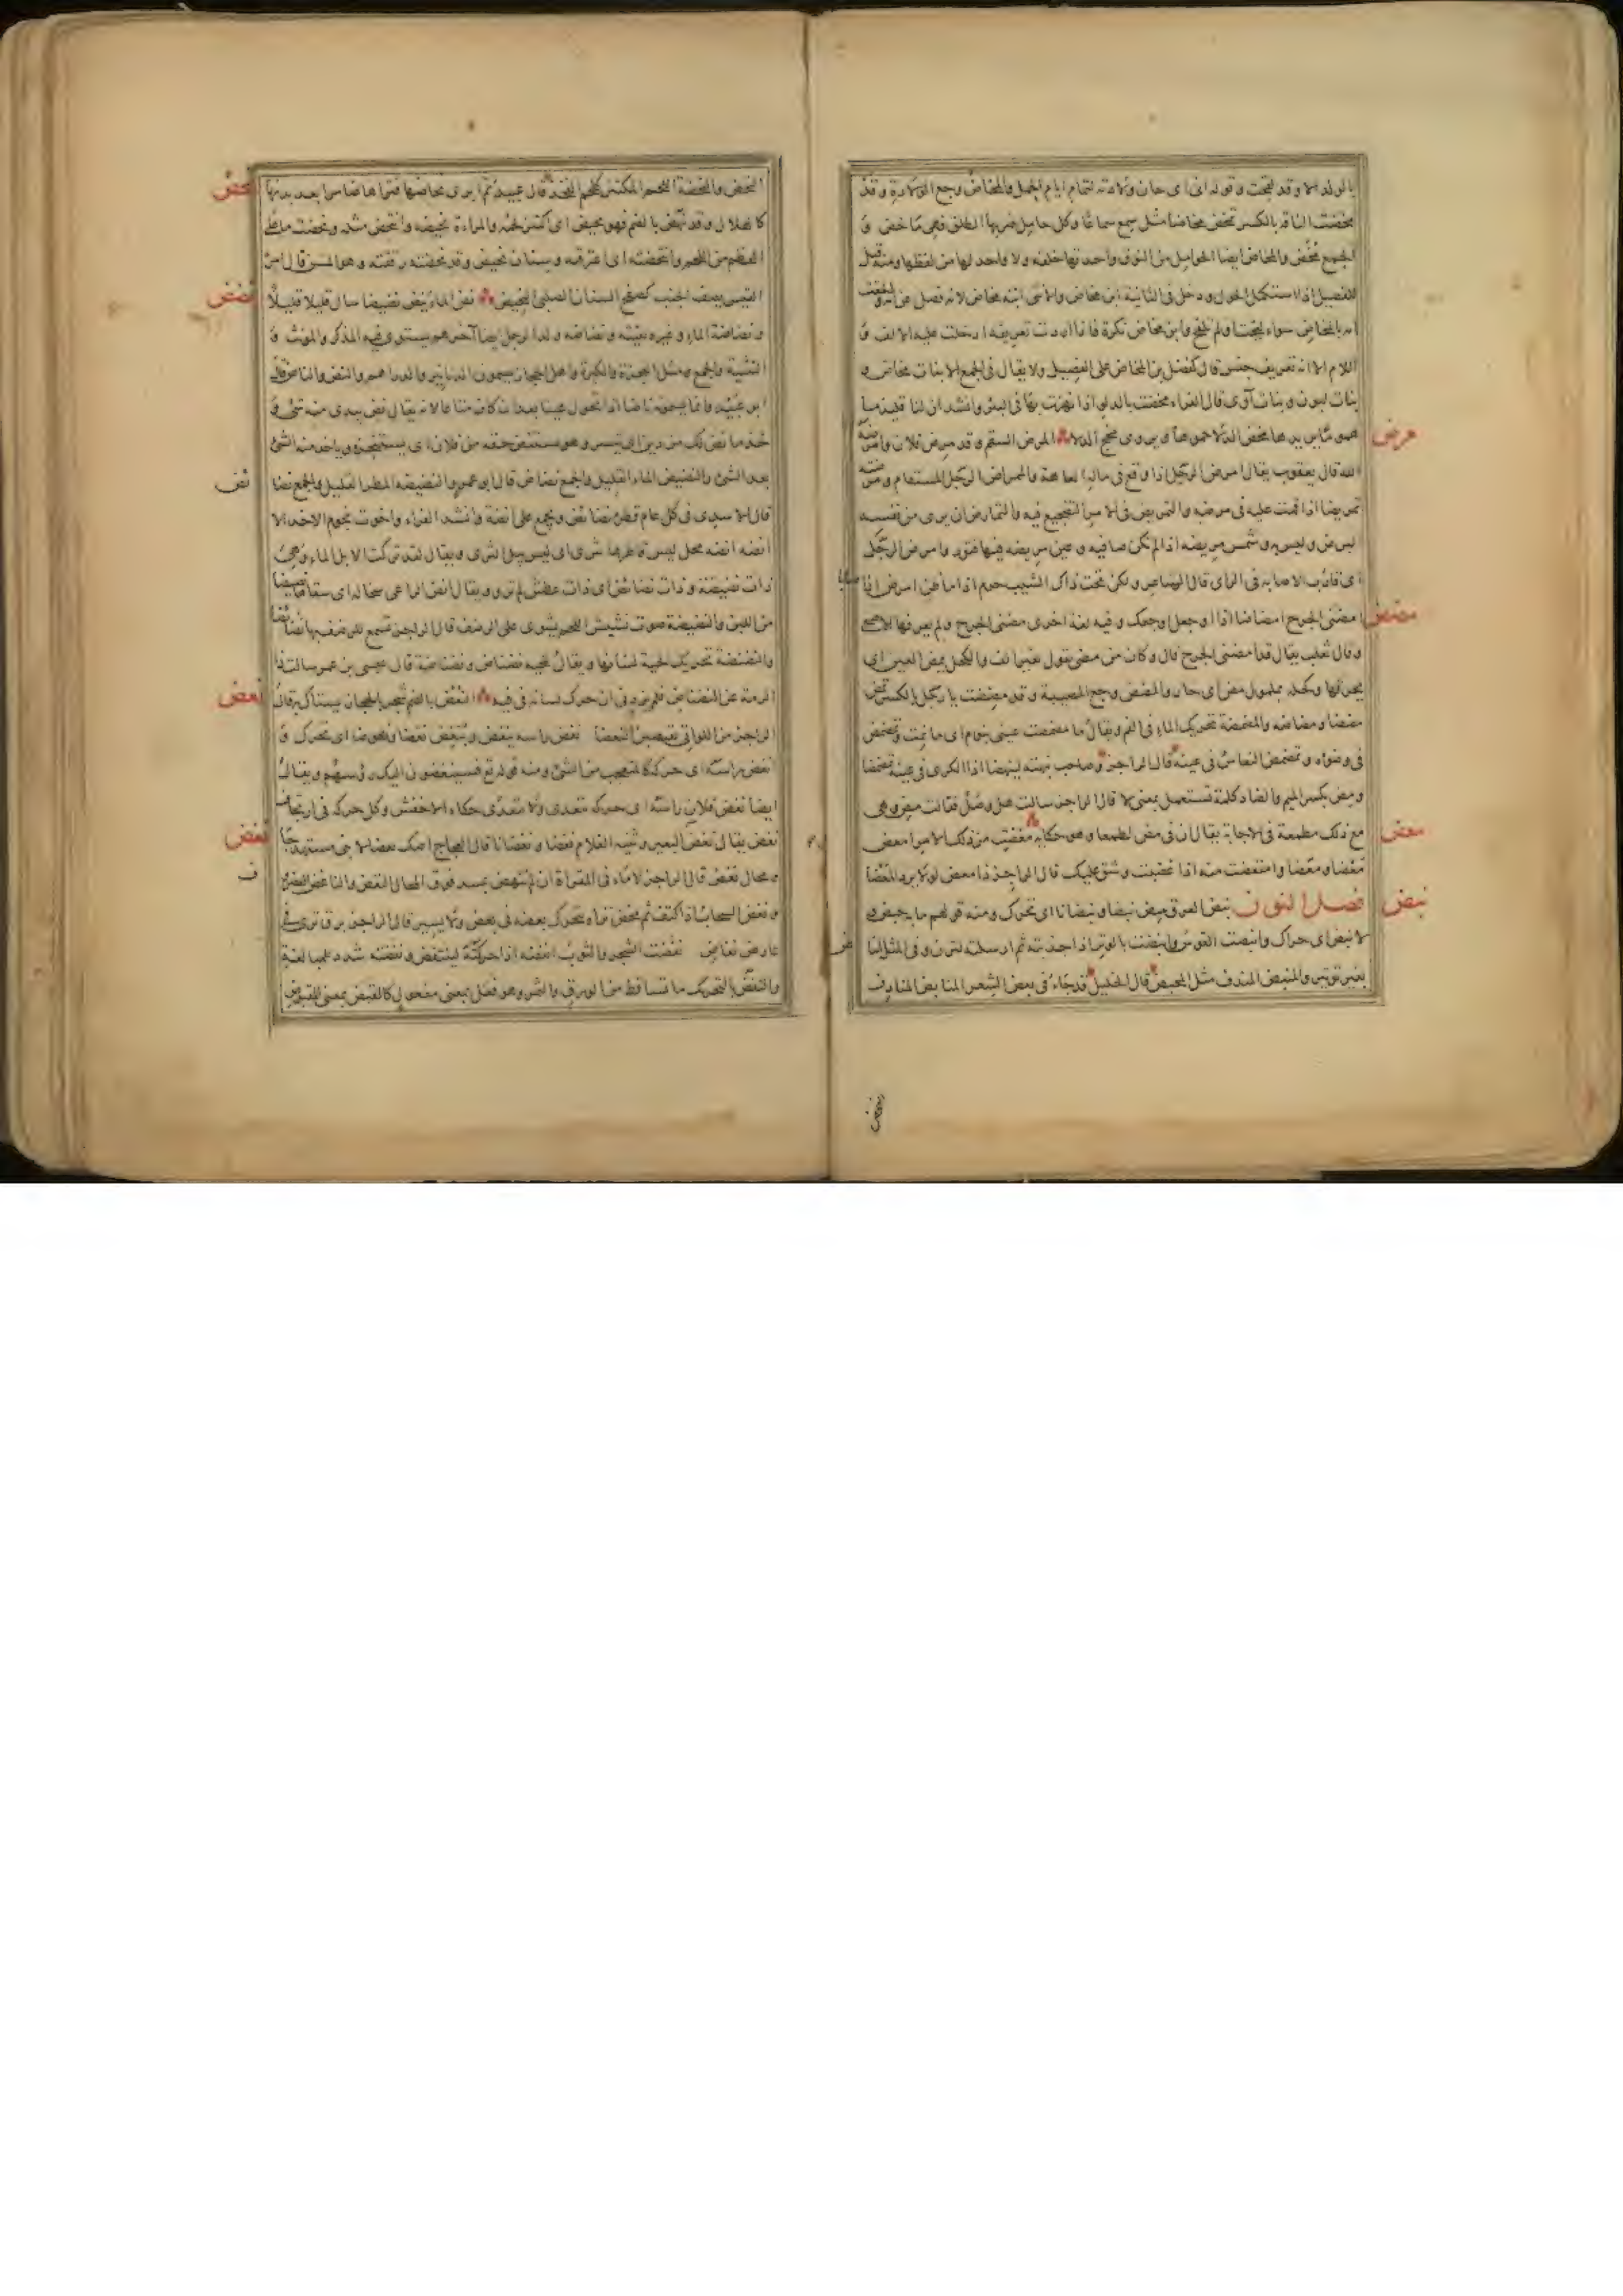 بالولد الا وقد نتجت وقوله انى اى حان ولادته لتمام ايام الحمل والمخاض وجع الولادة وقد
مخضت الناقة بالكسر تمخض مخاضا مثل سمع سماعا وكل حامل ضربها الطلق فهى ماخض و
الجمع مخض والمخاض ايضا الحوامل من النوق واحدتها خلفة ولا واحد لها من لفظها ومنه قيل
للفصيل اذا استكمل الحول ودخل فى الثانية ابن مخاض والانثى ابنة مخاض لانه فصل عن
امه بالمخاض سواء لقحت ولم تلقح وابن مخاض نكرة فاذا اردت تعريفه ادخلت عليه الالف و
اللام الا انه تعريف جنس قال كفضل بن المخاض على الفصيل ولا يقال فى الجمع الا بنات مخاض و
بنات لبون وبنات آوى قال الفراء مخضت بالدلو اذا نهزت بها فى البئر وانشد ان لنا قليذما
هموما يزيدها مخض الدلا جموما ويروى مخج الدلا المرض السقم وقد مرض فلان وامرضه
مرض
الله قال يعقوب يقال امرض الرجل اذا وقع فى ماله العاهة والممراض الرجل المسقام ومرضته
تمريضا اذا قمت عليه فى مرضه والتمريض فى الامر التضجيع فيه والتمارض ان يرى من نفسه
المرض وليس به وشمس مريضة اذا لم تكن صافية وعين مريضة فيها فتور وامرض الرجل
اى قارب الاصابة فى الراى قال الشاعر ولكن تحت ذاك الشيب حزم اذا ما ظن امرض او اصابا
امضنى الجرح امضاضا اذا اوجعك وفيه لغة اخرى مضنى الجرح ولم يعرفها الاصمعى
مضض
وقال ثعلب يقال قد امضنى الجرح قال وكان من مضى يقول مضنى بغير الف والكحل يمض العين اى
يحرقها وكحله بملمول مض اى حار والمضض وجع المصيبة وقد مضضت يا رجل بالكسر تمض
مضضا ومضاضة والمضمضة تحريك الماء فى الفم ويقال ما مضمضت عينى بنوم اى ما نمت وتمضمض
فى وضوئه وتمضمض النعاس فى عينه قال الراجز وصاحب نبهته لينهضا اذا الكرى فى عينه تمضمضا
ومض بكسر الميم والضاد كلمة تستعمل بمعنى لا قال الراجز سالت هل وصل فقالت مض وهى
مع ذلك مطمعة فى الاجابة يقال ان فى مض لطمعا وهو حكاية معضت من ذلك الامر امعض
معض
معضا ومعضا وامتعضت منه اذا غضبت وشق عليك قال الراجز ذا معض لولا يرد المعضا
فصل النون نبض العرق ينبض نبضا ونبضانا اى تحرك ومنه قولهم ما به حبض و
نبض
لا نبض اى حراك وانبضت القوس وانبضت بالوتر اذا جذبته ثم ارسلته لترن وفى المثل انباض
بغير توتير والمنبض المندف مثل المحبض قال الخليل قد جاء فى بعض الشعر المنابض المنادف
النحض
النحض والنحضة اللحم المكتنز كلحم الفخذ قال عبيد ثم ابرى نحاضها فتراها ضامرا بعد بدنها
نحض
كالهلال وقد نحض بالضم فهو نحيض اى اكتنز لحمه والمراءة نحيضة وانتحض مثله ونحضت ما على
العظم من اللحم وانتحضته اى اعترقته وسنان نحيض وقد نحضته رققته وهو المسن قال امرئ
القيس يصف الجنب كصفح السنان الصلبى النحيض نض الماء ينض نضيضا سال قليلا قليلا
نضض
ونضاضة الماء وغيره بقيته ونضاضة ولد الرجل ايضا آخرهم يستوى فيه المذكر والمونث و
التثنية والجمع مثل العجزة والكبرة واهل الحجاز يسمون الدنانير والدراهم والنض والناض قال
ابو عبيد وانما يسمونه ناضا اذا تحول عينا بعد ان كان متاعا لانه يقال ما نض بيدى منه شئ و
خذ ما نض لك من دين اى تيسر وهو يستنض حقه من فلان اى يستنجزه وياخذ منه الشئ
بعد الشئ والنضيض الماء القليل والجمع نضاض قال ابو عمرو النضيضة المطر القليل والجمع نضائض
قال الاسدى فى كل عام قطره نضائض ويجمع على انضة وانشد الفراء واخوت نجوم الاخذ الا
انضة انضة محل ليس قاطرها يثرى اى ليس يبل الثرى ويقال لقد تركت الابل الماء وهى
ذات نضيضة وذات نضائض اى ذات عطش لم ترو ويقال انض الراعى سخاله اى سقاها نضيضا
من اللبن والنضيضة صوت نشيش اللحم يشوى على الرضف قال الراجز تسمع للرضف بها نضائضا
والنضنضة تحريك الحية لسانها ويقال حية نضناض ونضناضة قال عيسى بن عمر سالت ذا
الرمة عن النضناض فلم يزد فى ان حرك لسانه فى فيه النعض بالضم شجر بالحجاز يستاك به قال
نعض
الراجز من اللواتى يقتضبن النعضا نغض راسه ينغض وينغض نغضا ونغوضا اى تحرك و
انغض راسه اى حركه كالمتعجب من الشئ ومنه قوله تع فسينغضون اليك رؤسهم ويقال
ايضا نغض فلان راسه اى حركه يتعدى ولا يتعدى حكاه الاخفش وكل حركة فى ارتجاف
نغض يقال نغض البعير وثنية الغلام نغضا ونغضانا قال العجاج اصك نغضا لا ينى مستهدجا
نغض
ومحال نغض قال الراجز لا ماء فى المقراة ان لم تنهض بمسد فوق المحال النغض
ونغض السحاب اذا كثف ثم مخض تراه يتحرك بعضه فى بعض ولا يسير قال الراجز برق ترى فى
عارض نغاض نفضت الشجر والثوب انفضه اذا حركته لينتفض ونفضته شدد للمبالغة
والنفض بالتحريك ما تساقط من الورق والثمر وهو فعل بمعنى مفعول كالقبض بمعنى المقبوض